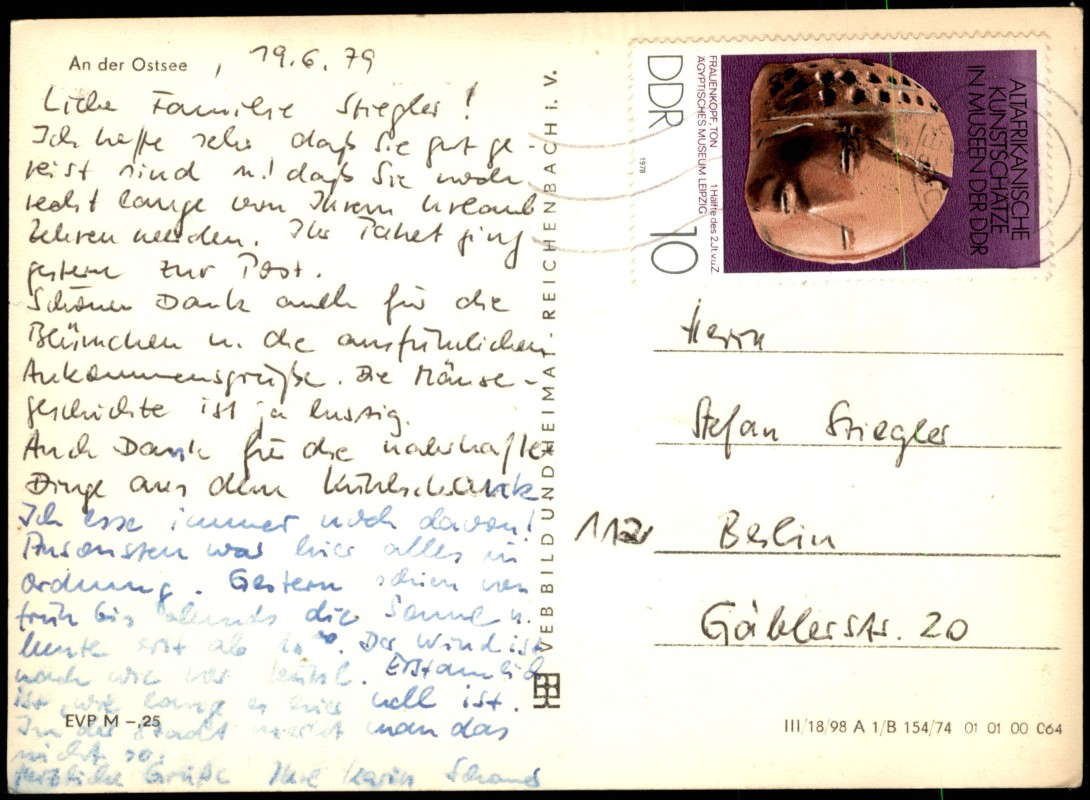 An der Ostsee , 19.6.79
Liebe Familie Stiegler !
Ich hoffe sehr daß Sie gut ge-
reist sind u. daß Sie noch
recht lange von Ihrem Urlaub
zehren werden. Ihr Paket ging
gestern zur Post.
Schönen Dank auch für die
Blümchen u. die ausführlichen
Ankommensgrüße. Die Mäuse-
geschichte ist ja lustig.
Auch Dank für die nahrhaften
Dinge aus dem Kühlschrank
Ich esse immer noch davon!
Ansonsten war hier alles in
Ordnung. Gestern schien von
früh bis abends die Sonne u.
heute erst ab Der Wind ist
nach wie vor kühl. Erstaunlich
ist, wie lange es hier hell ist.
In der Stadt merkt man das
nicht so.
Herzliche Grüße Ihre Karin
EVP M –,25
VEB BILD UND HEIMAT · REICHENBACH i. V.
DDR
10
1978
FRAUENKOPF, TON
ÄGYPTISCHES MUSEUM LEIPZIG
1. Hälfte des 2.Jt.v.u.Z.
ALTAFRIKANISCHE
KUNSTSCHÄTZE
IN MUSEEN DER DDR
Herrn
Stefan Stiegler
112 Berlin
Gäblerstr. 20
III/18/98 A 1/B 154/74 01 01 00 064